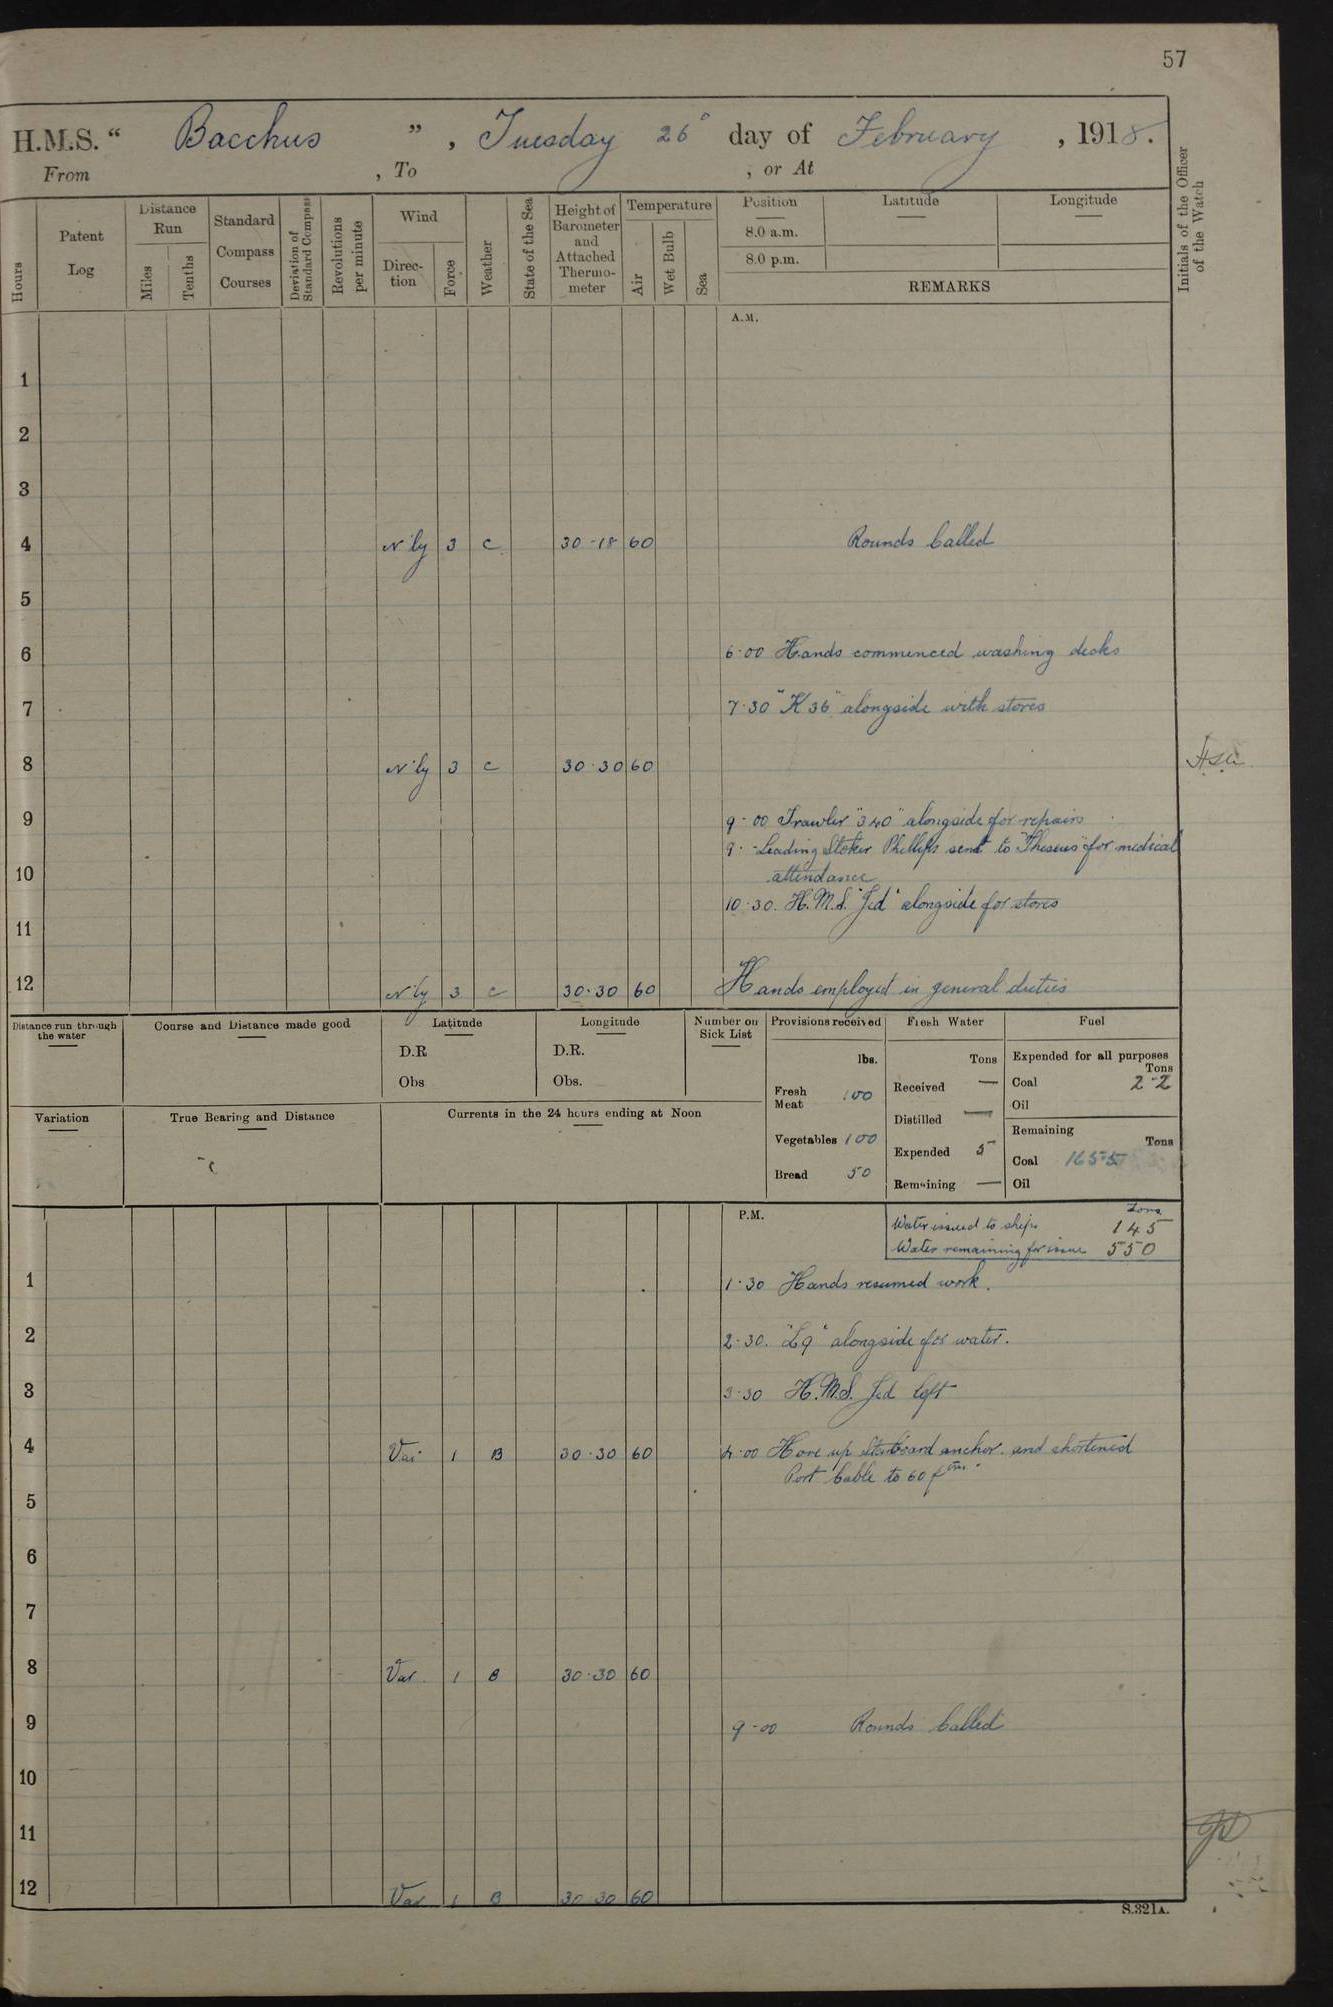 57
H.M.S. “ Bacchus ” , Tuesday 26° day of February , 1918.
From , To , or At
Hours
Patent Log
Distance Run
Miles
Tenths
Standard Compass Courses
Deviation of Standard Compass
Revolutions per minute
Wind
Direc-tion
Force
Weather
State of the Sea
Height of Barometer and Attached Thermo-meter
Temperature
Air
Wet Bulb
Sea
Position
8.0 a.m.
8.0 p.m.
Latitude
Longitude
REMARKS
Initials of the Officer of the Watch
A.M.
1
2
3
4 N'ly 3 C 30-18 60 Rounds Called
5
6 6·00 Hands commenced washing decks
7 7·30 "K 36" alongside with stores
8 N'ly 3 C 30·30 60
9 9-00 Trawler "340" alongside for repairs
9· - Leading Stoker Phillips sent to "Theseus" for medical
10 attendance
10·30. H.M.S. "Jed" alongside for stores
11
12 N'ly 3 C 30·30 60 Hands employed in general duties
Distance run through the water
Course and Distance made good
Latitude
D.R
Obs
Longitude
D.R.
Obs.
Number on Sick List
Provisions received
lbs.
Fresh Meat 100
Vegetables 100
Bread 50
Fresh Water
Tons
Received —
Distilled —
Expended 5
Remaining —
Fuel
Expended for all purposes
Tons
Coal 2-2
Oil
Remaining
Tons
Coal 1655
Oil
Variation
True Bearing and Distance
Currents in the 24 hours ending at Noon
P.M.
Tons
Water issued to ships 145
Water remaining for issue 550
1 1·30 Hands resumed work.
2 2·30. "L9" alongside for water.
3 3·30 H.M.S. Jed left
4 Var 1 B 30·30 60 4·00 Hove up Starboard anchor. and shortened
Port Cable to 60 fms.
5
6
7
8 Var. 1 B 30·30 60
9 9-00 Rounds Called
10
11
12 Var 1 B 30 30 60
S.321A.